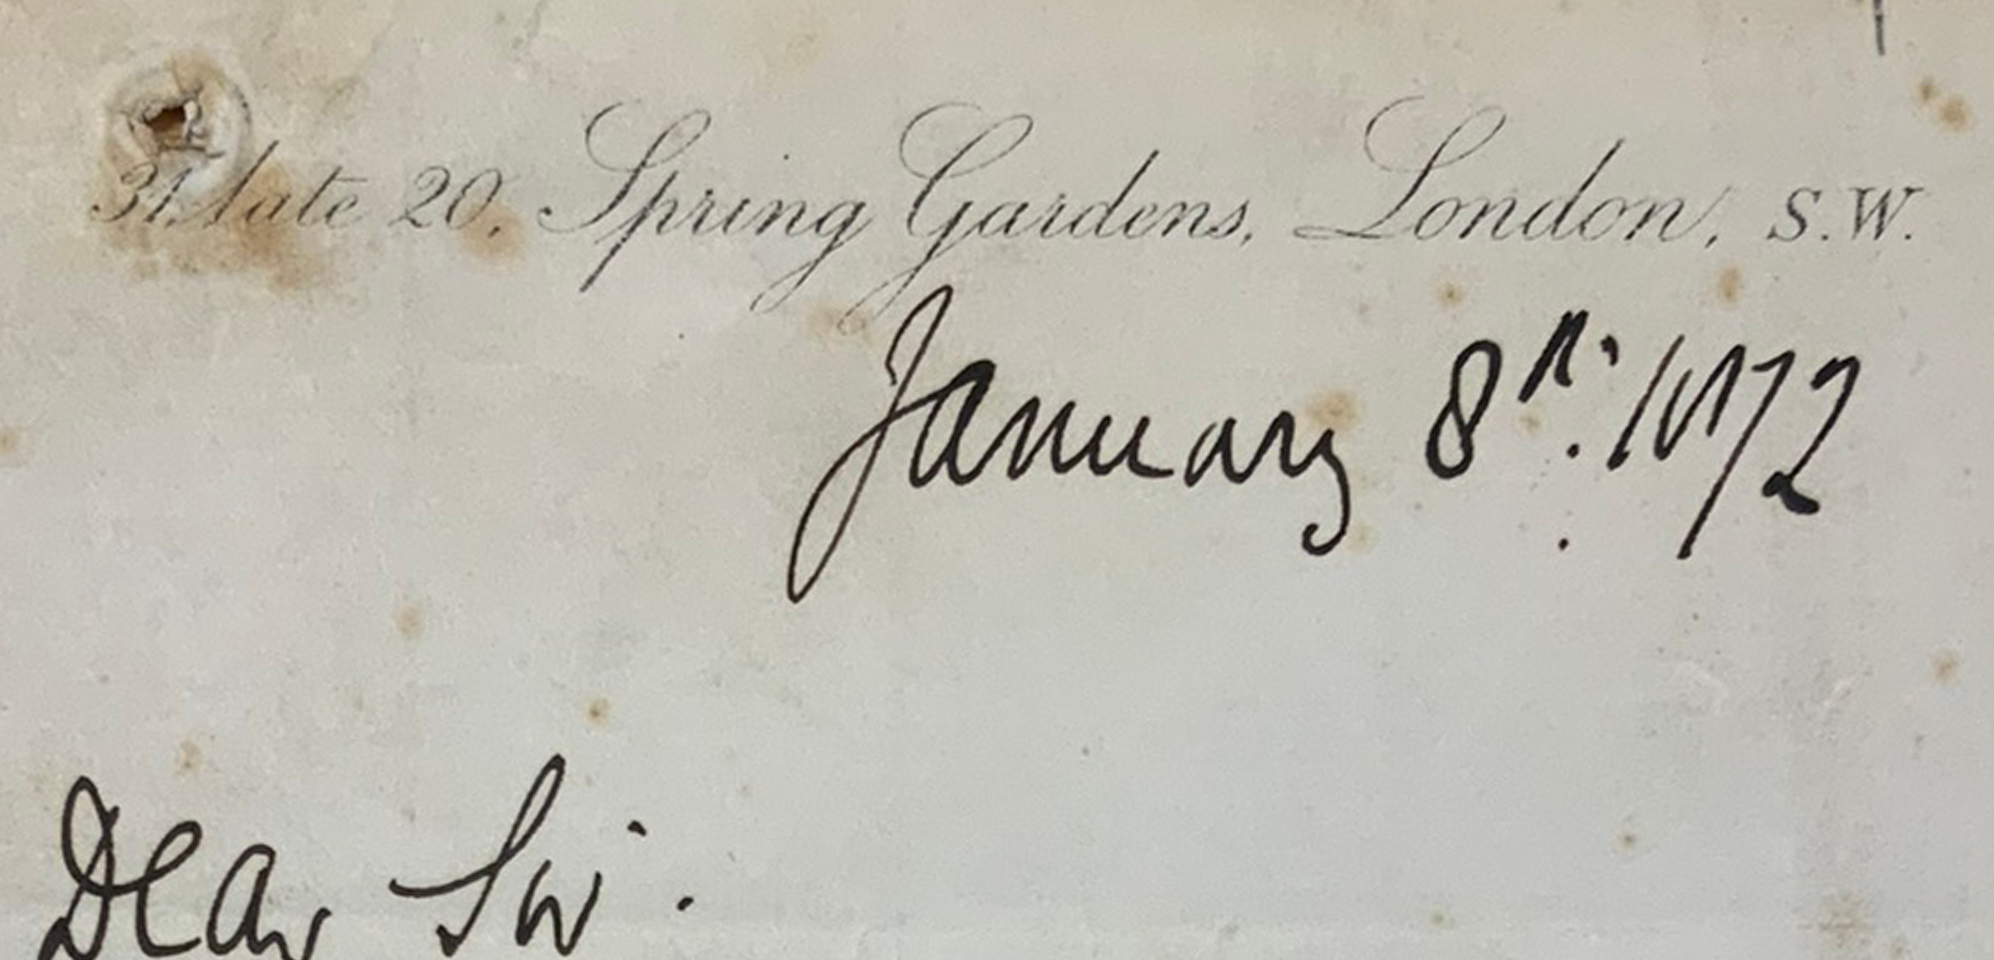 31, late 20, Spring Gardens, London, S.W.
January 8th. 1872
Dear Sir.